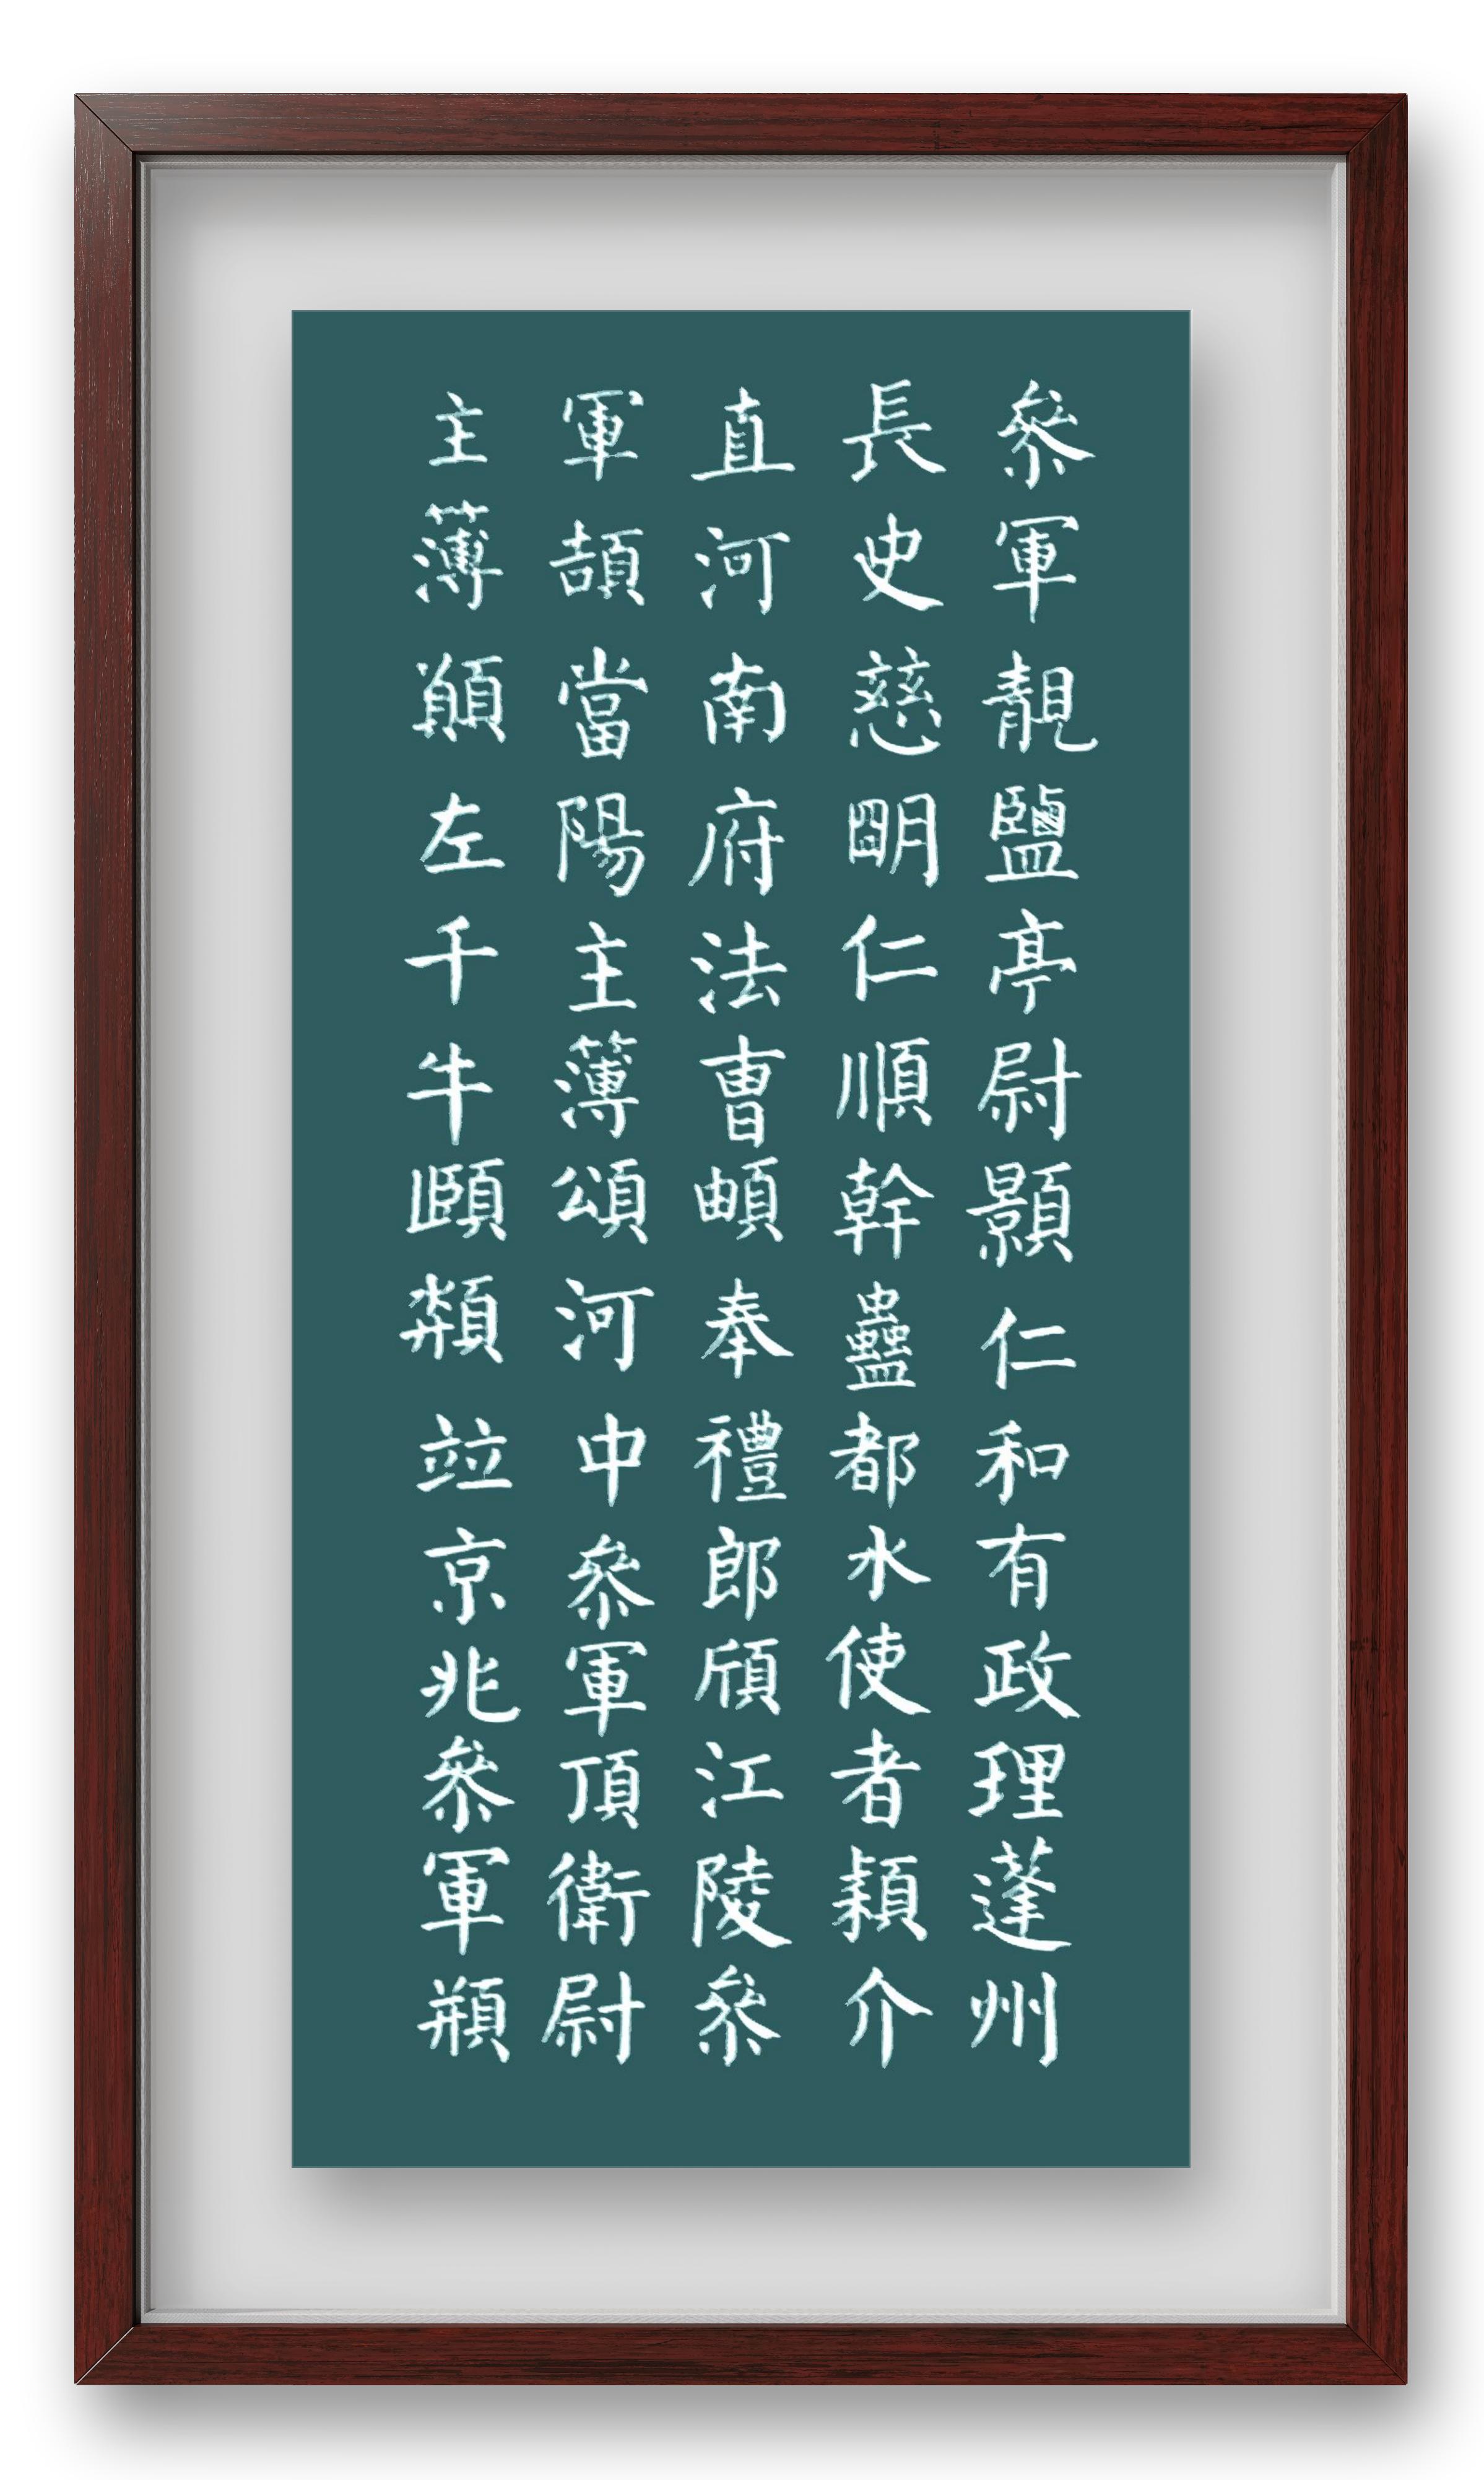 參軍靚鹽亭尉顥仁和有政理蓬州
長史慈明仁順幹蠱都水使者穎介
直河南府法曹頔奉禮郎頎江陵參
軍頡當陽主簿頌河中參軍頂衛尉
主簿願左千牛頤竝京兆參軍